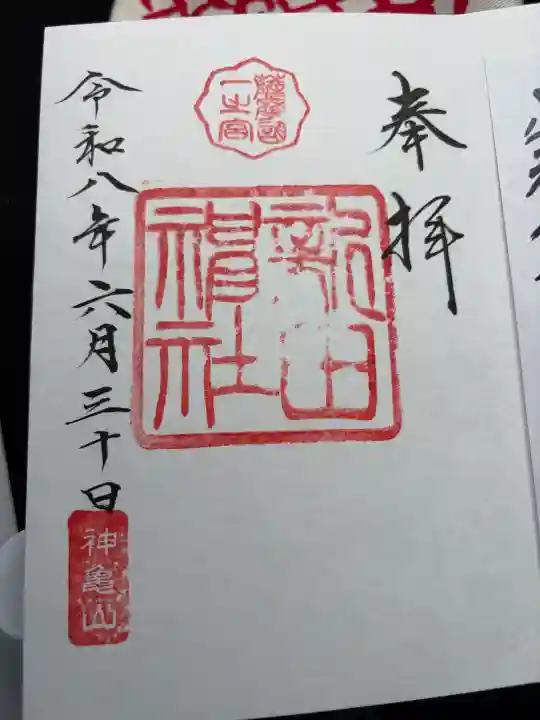 奉拝
薩摩國
一之宮
新田
神社
令和八年六月三十日
神亀山